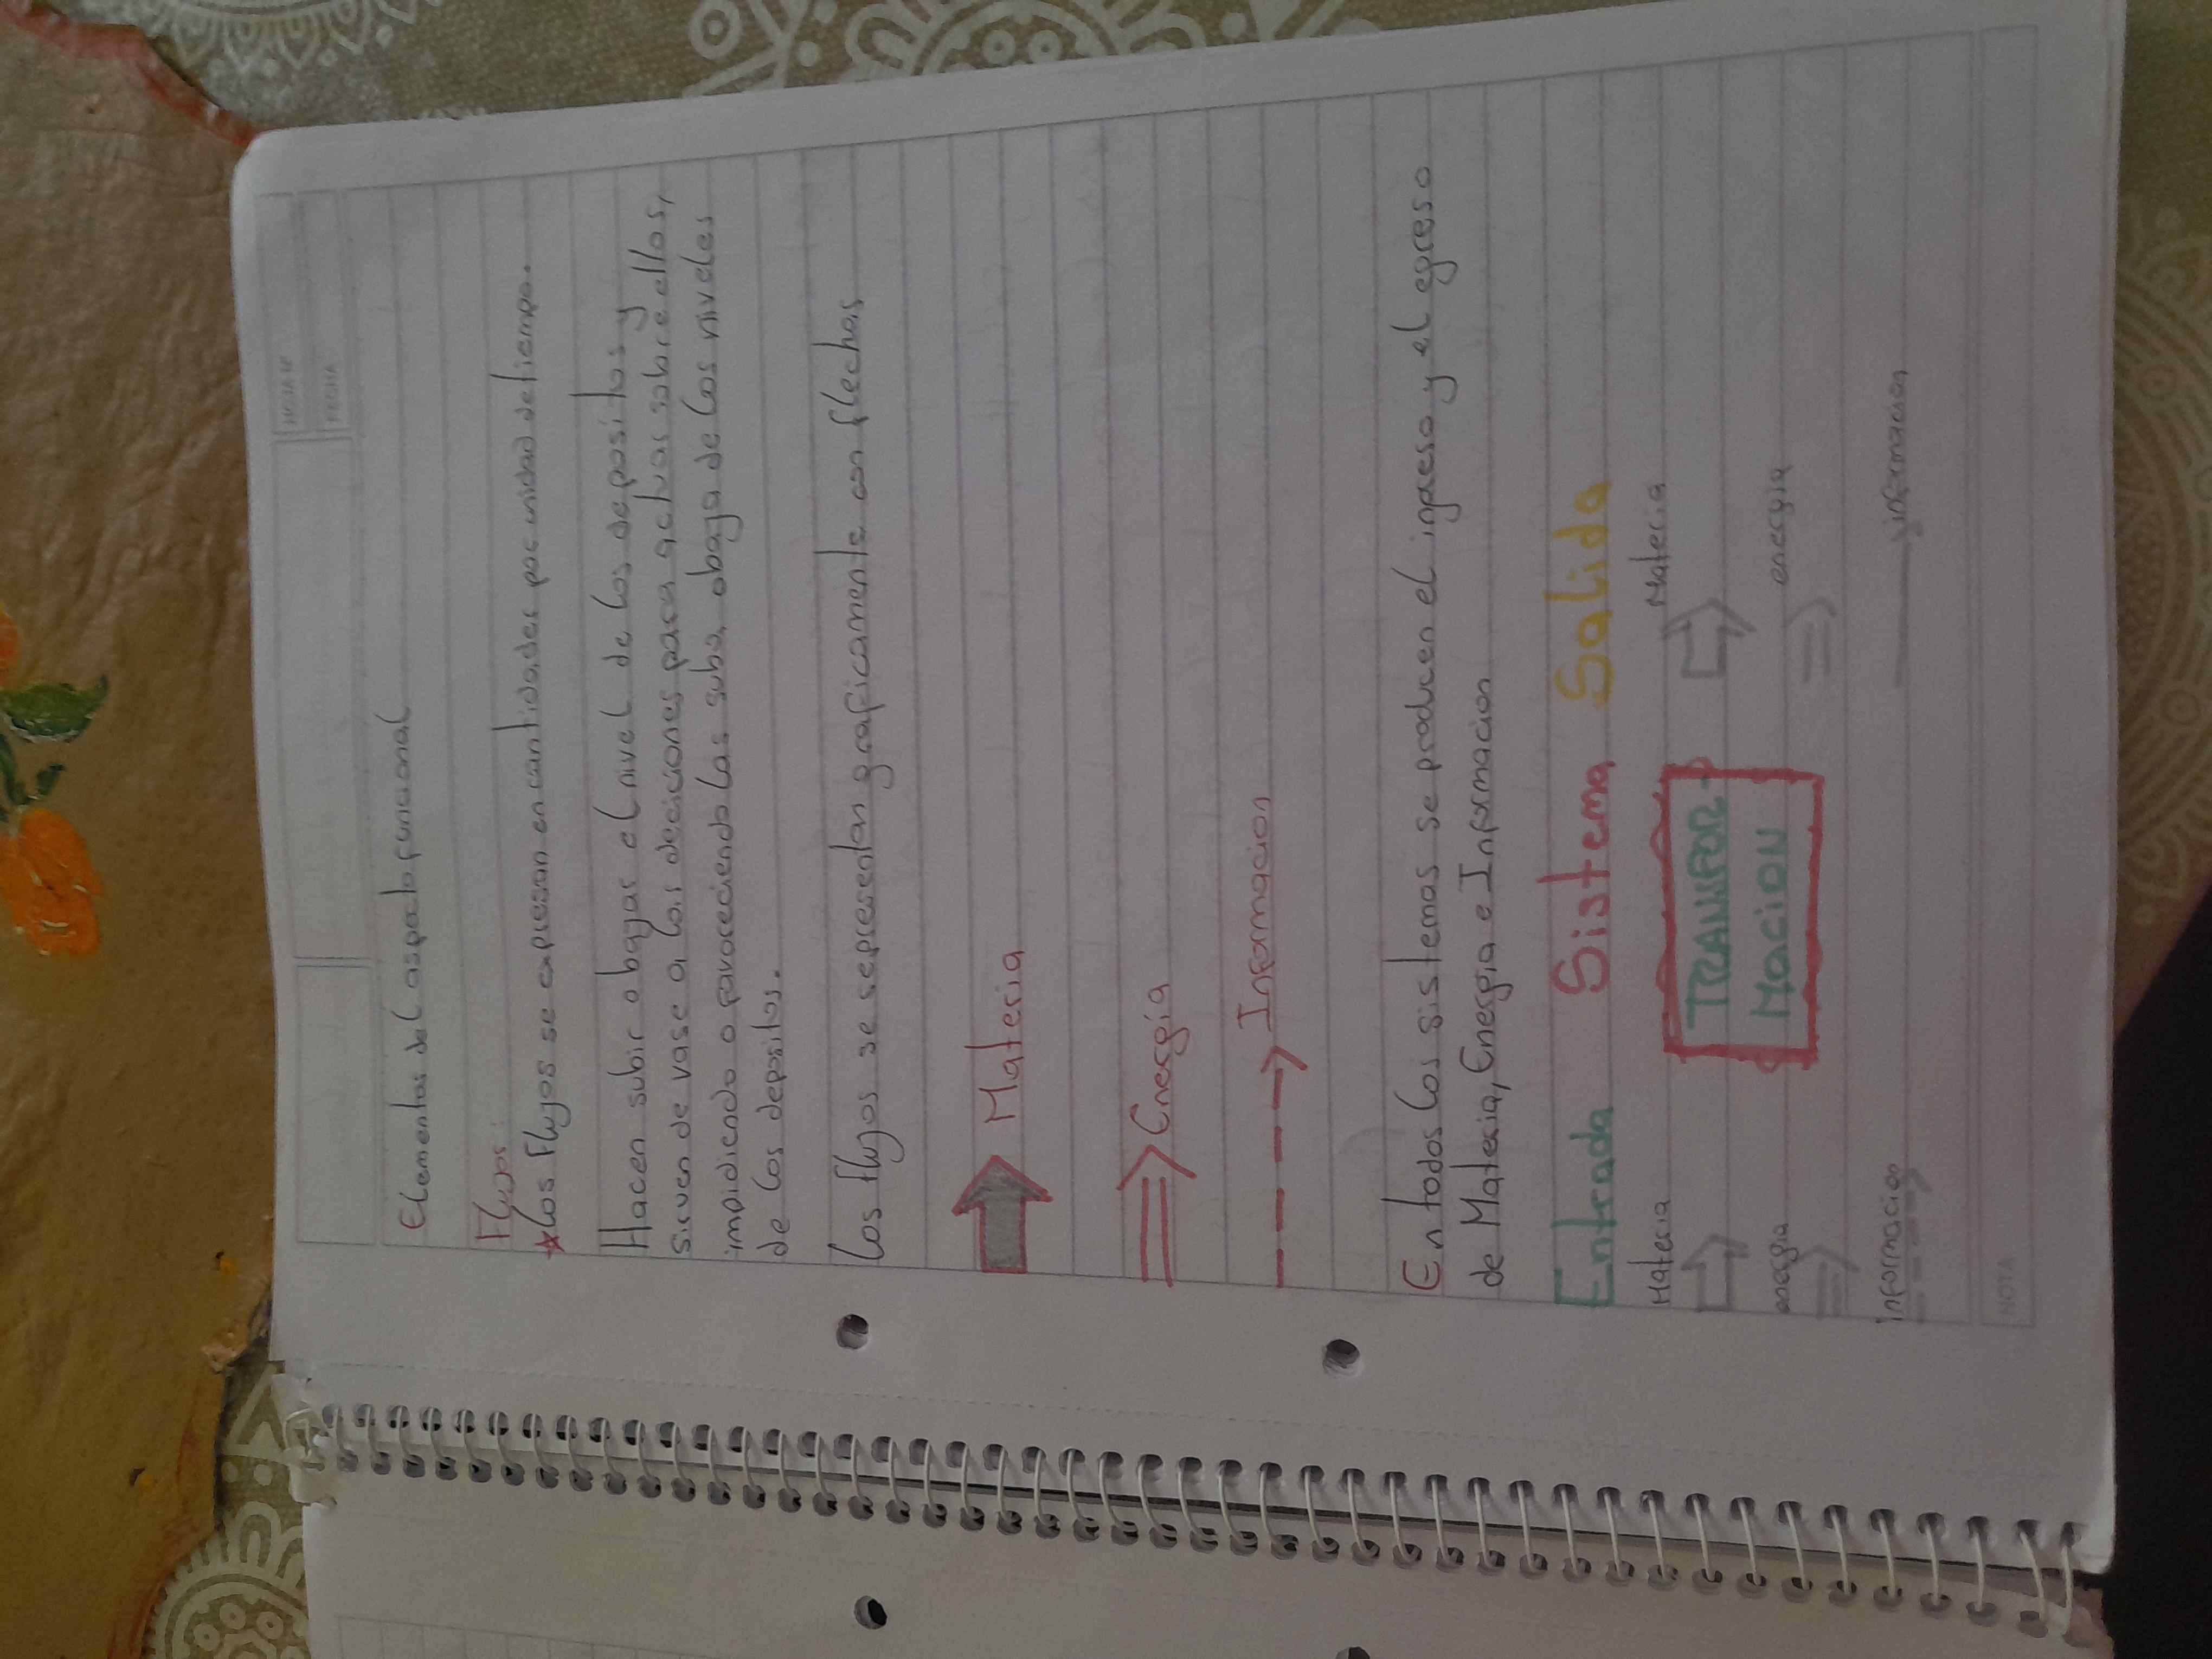 HOJA N°
FECHA
Elementos del aspecto funcional
Flujos:
Los Flujos se expresan en cantidades por unidad de tiempo.
Hacen subir o bajar el nivel de los depositos y
sirven de vase a las deciciones para actuar sobre ellos,
impidiendo o favoreciendo las suba o baja de los niveles
de los depositos.
Los flujos se representan graficamente con flechas
Materia
Energía
Informacion
En todos los sistemas se producen el ingreso y el egreso
de Materia, Energia e Informacion
Entrada Sistema Salida
Materia TRANSFOR- Materia
energia Macion energia
informacion informacion
NOTA